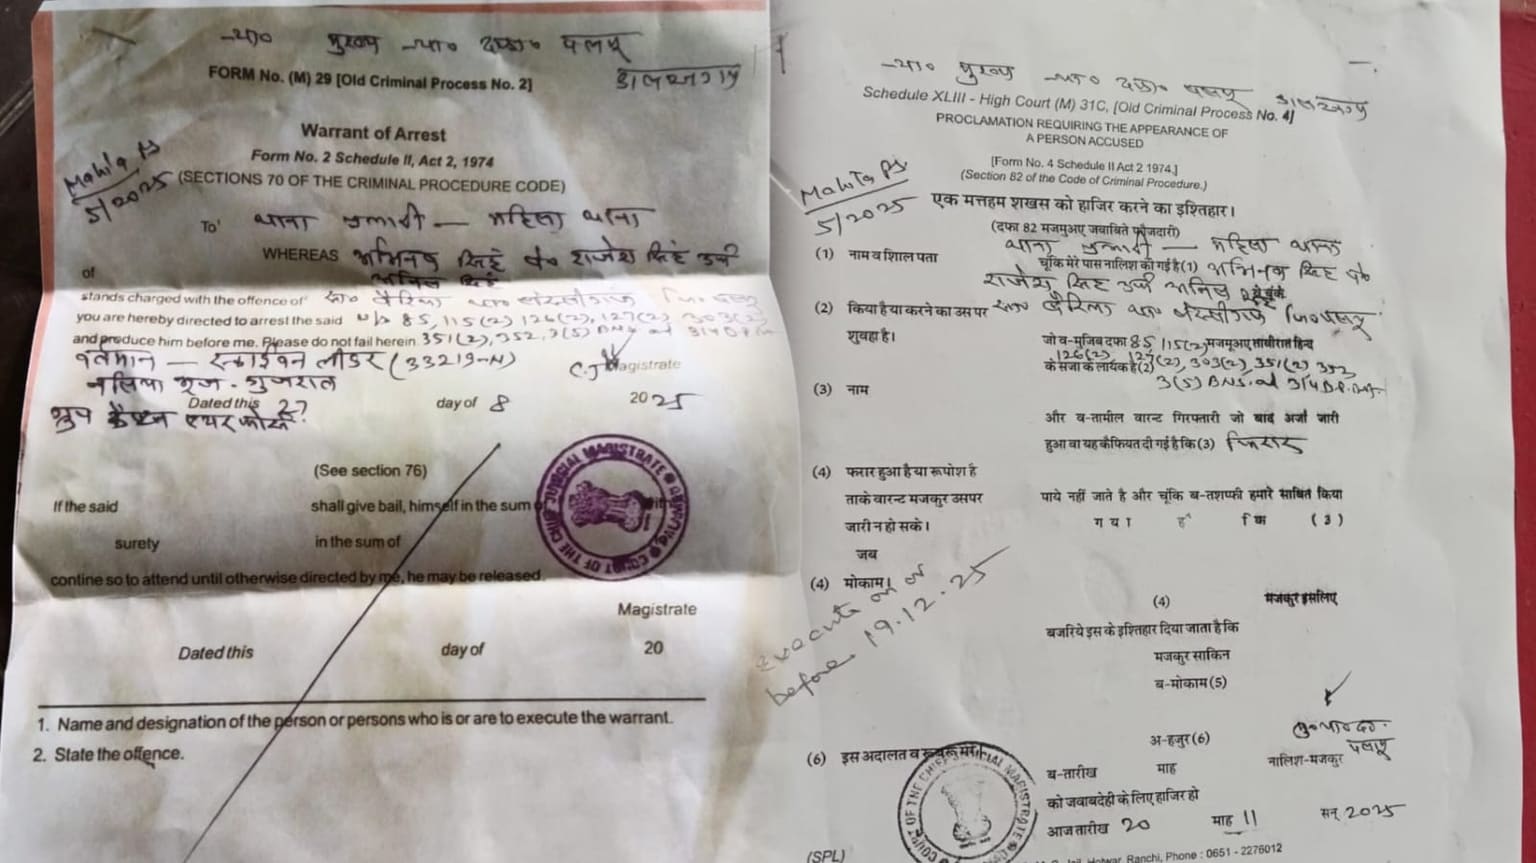 न्या० मुख्य न्या० दण्डा० पलामू
डालटनगंज
FORM No. (M) 29 [Old Criminal Process No. 2]
Warrant of Arrest
Form No. 2 Schedule II, Act 2, 1974
(SECTIONS 70 OF THE CRIMINAL PROCEDURE CODE)
Mahila PS
5/2025
To' थाना प्रभारी — महिला थाना
WHEREAS अभिनव सिंह पे० राजेश सिंह उर्फ
of अनिल सिंह
stands charged with the offence of
you are hereby directed to arrest the said u/s 85, 115(2), 126(2), 127(2), 303(2)
and produce him before me. Please do not fail herein. 351(2), 352, 3(5) BNS
वर्तमान — स्क्वाड्रन लीडर (33219-N)
नलिया भुज - गुजरात
C.J Magistrate
Dated this 27 day of 8 2025
(See section 76)
If the said shall give bail, himself in the sum of
surety in the sum of
contine so to attend until otherwise directed by me, he may be released.
Magistrate
Dated this day of 20
1. Name and designation of the person or persons who is or are to execute the warrant.
2. State the offence.
COURT OF THE CHIEF JUDICIAL MAGISTRATE
न्या० मुख्य न्या० दण्डा० पलामू डालटनगंज
Schedule XLIII - High Court (M) 31C, [Old Criminal Process No. 4]
PROCLAMATION REQUIRING THE APPEARANCE OF
A PERSON ACCUSED
[Form No. 4 Schedule II Act 2 1974.]
(Section 82 of the Code of Criminal Procedure.)
Mahila PS
5/2025
एक मत्तहम शखस को हाजिर करने का इश्तिहार।
(दफा 82 मजमुए जवाबिते फौजदारी)
थाना प्रभारी — महिला थाना
(1) नाम व शाल पता चूंकि मेरे पास नालिश की गई है (1) अभिनव सिंह पे०
राजेश सिंह उर्फ अनिल सिंह
(2) किया है या करने का उस पर
शुवहा है।
जो व-मुजिब दफा 85, 115(2) मजमुए ताथीरात हिन्द
126(2), 127(2), 303(2), 351(2), 352,
के सजा के लायक है (2)
3(5) BNS. and 3/4 D.P. Act
(3) नाम
और व-तामील वारन्ट गिरफ्तारी जो बाद अर्जा जारी
हुआ वा यह कैफियत दी गई है कि (3) फिरार
(4) फरार हुआ है या रूपोश है
ताके वारन्ट मजकुर उसपर
जारी न हो सके।
पाये नहीं जाते है और चूंकि ब-तशफ्फी हमारे साबित किया
गया है कि (3)
जब
(4) मोकाम।
Execute on or
before 19.12.25
(4) मजकुर इसलिए
बजरिये इस के इश्तिहार दिया जाता है कि
मजकुर साकिन
ब-मोकाम (5)
(6) इस अदालत व रूबरू मेरे।
अ-हजुर (6)
मु०न्या०दं०
पलामू
नालिश-मजकुर
ब-तारीख माह
को जवाबदेही के लिए हाजिर हो
आज तारीख 20 माह 11 सन् 2025
COURT OF THE CHIEF JUDICIAL MAGISTRATE
(SPL)
Jail, Hotwar, Ranchi, Phone : 0651 - 2276012